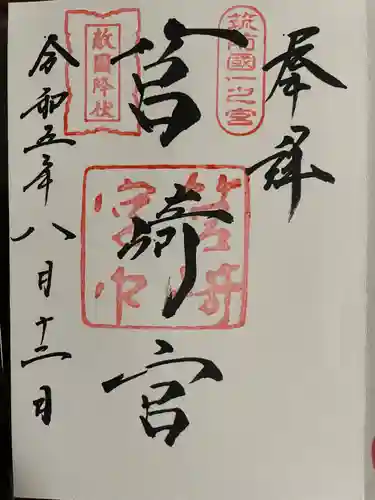 奉拝
筑前國一之宮
筥崎宮
敵國降伏
令和五年八月十二日